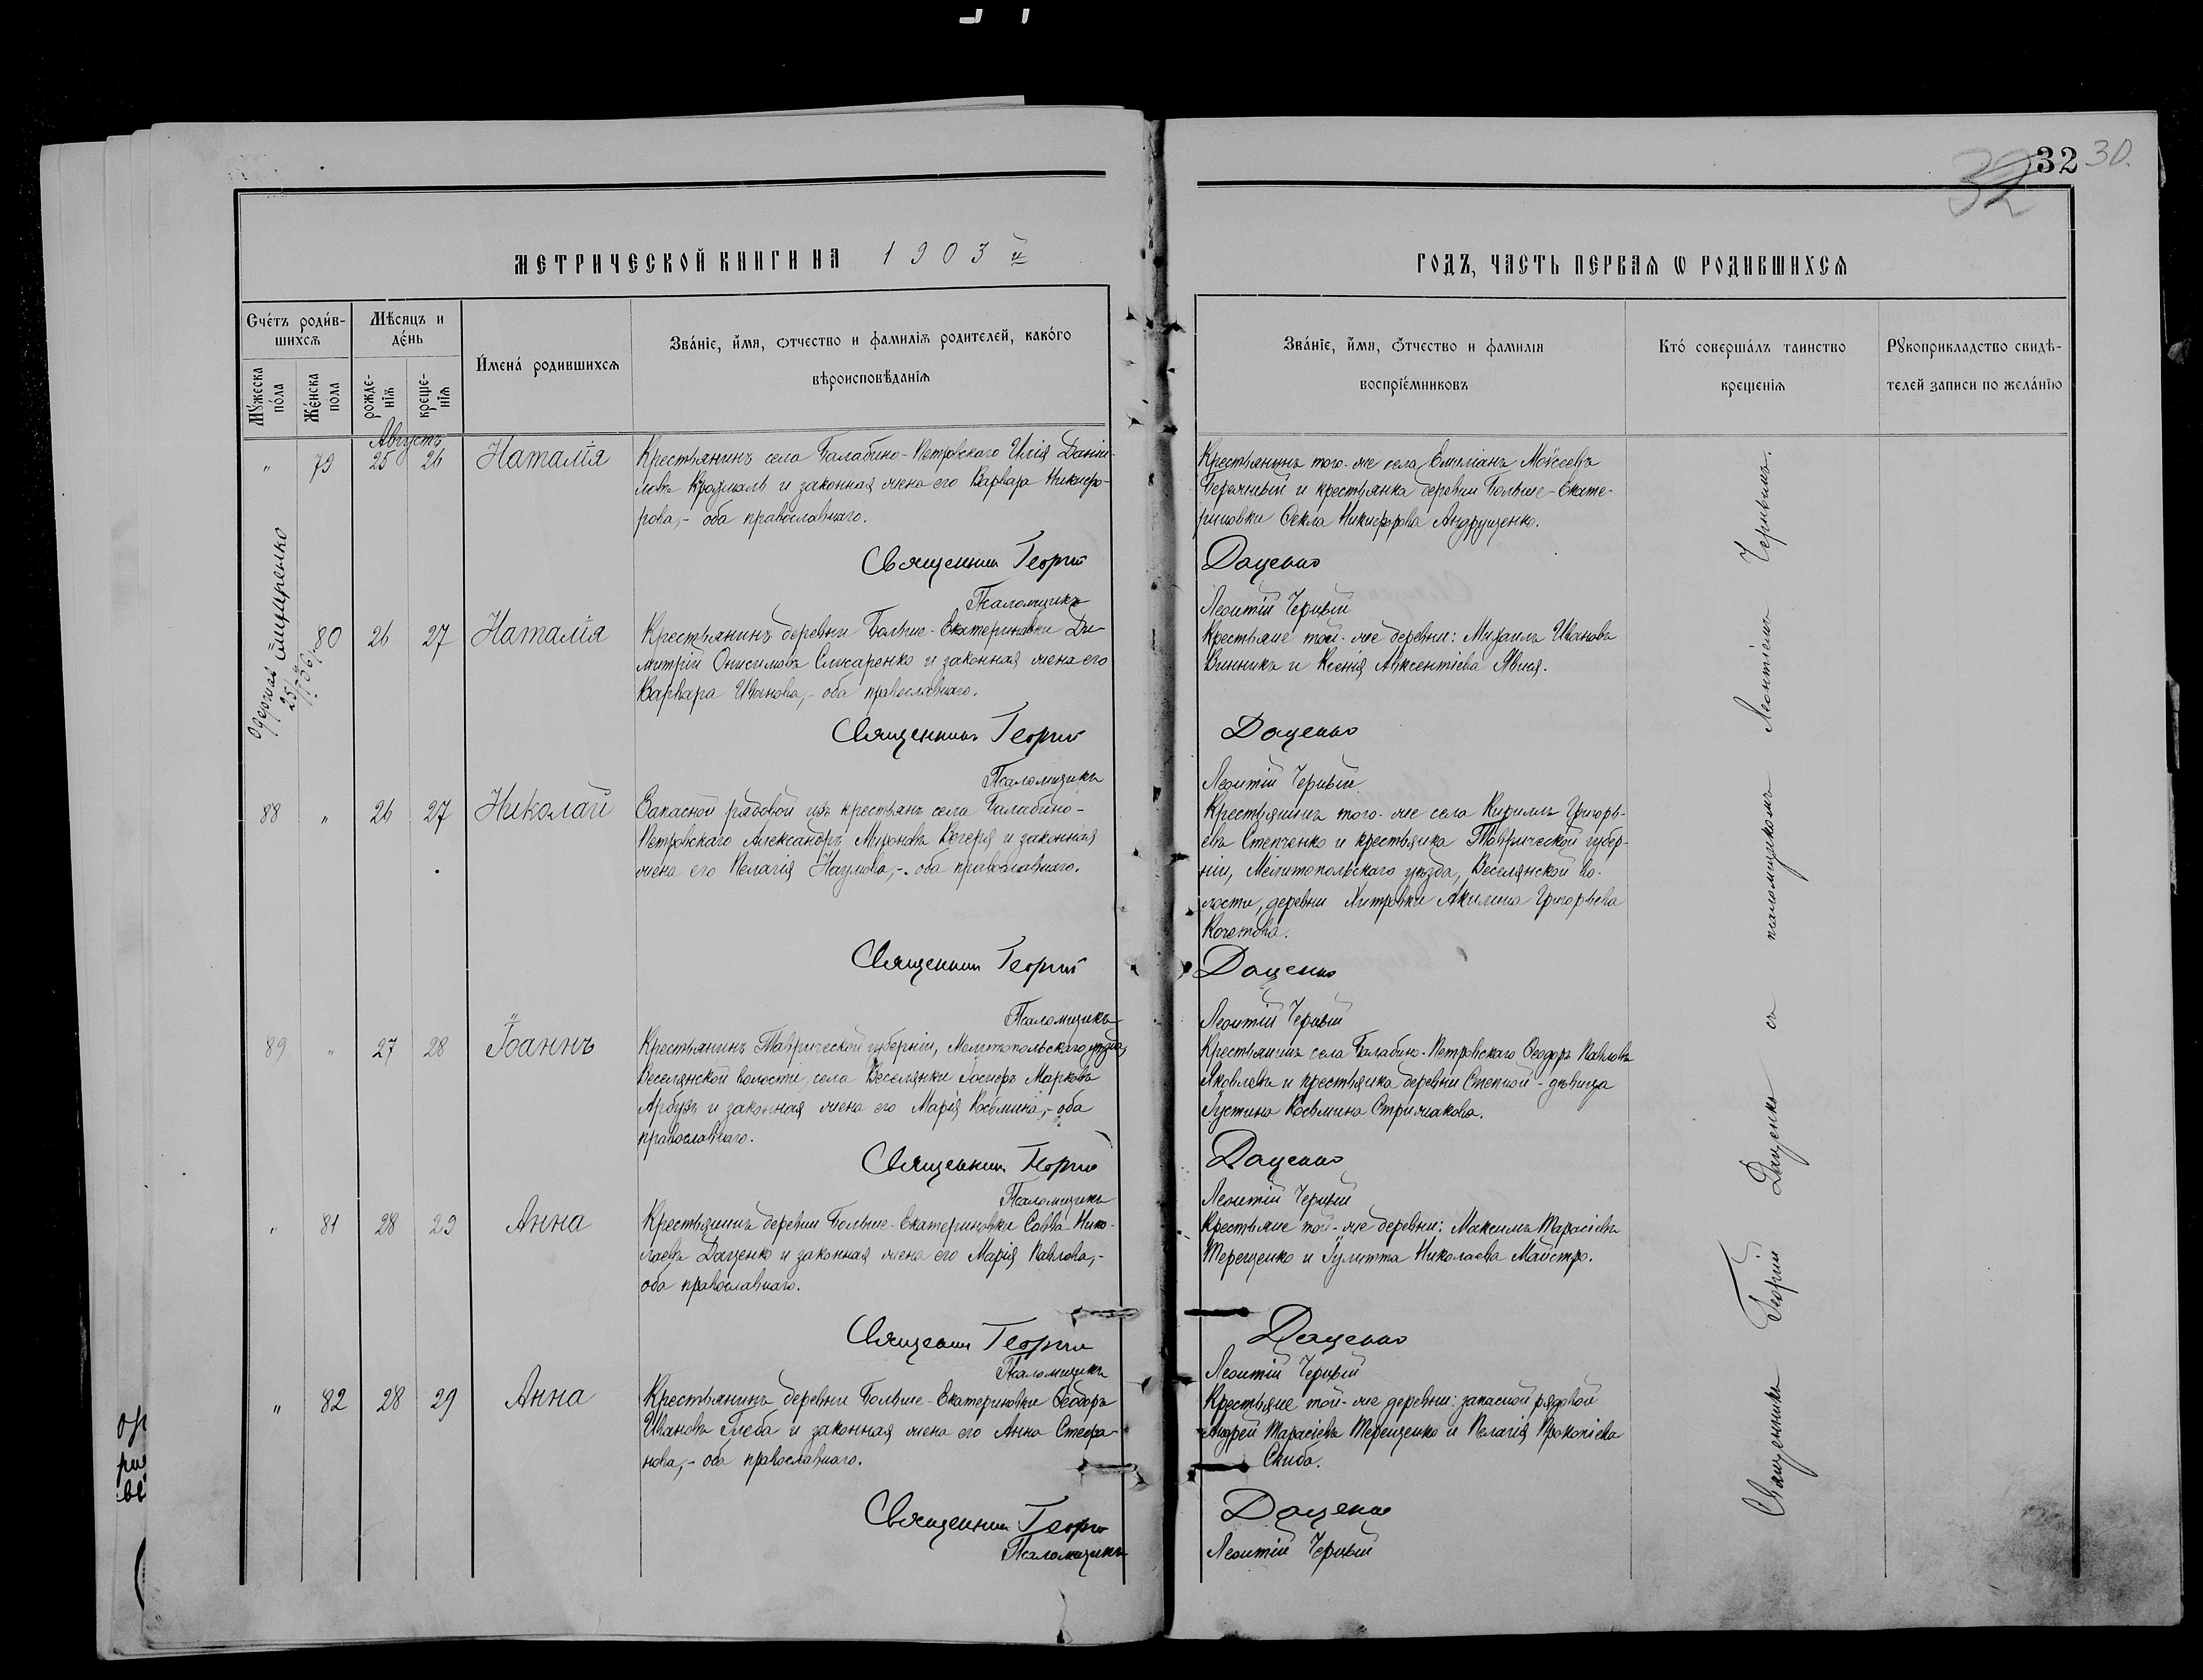 32
32
30.
МЕТРИЧЕСКОЙ КНИГИ НА 1903 й
ГОДЪ, ЧАСТЬ ПЕРВАЯ Ѡ РОДИВШИХСЯ
Счéтъ роди́в-
шихсѧ
Мѣсяцъ и
дéнь
И́мена́ родившихсѧ
Зва́нiе, и́мя, ѻтчество и фамилiѧ родителей, како́го
вѣроисповѣ́данiѧ
Мꙋ́жеска
по́ла
Же́нска
пола
рожде-
нiѧ
креще-
нiѧ
Зва́нiе, и́мя, ѻ́тчество и фамилiя
воспрiе́мниковъ
Кто́ соверша́лъ таинство
крещенiѧ
Рꙋкоприкладство свидѣ-
телей записи по жела́нiю
Августъ
" 79 25 26 Наталiя
Крестьянинъ села Балабино-Петровскаго Илiя Данiи-
ловъ Крохмаль и законная жена его Варвара Никифо-
рова,- оба православнаго.
Священник Георгiй
Псаломщикъ
Крестьянинъ того-же села Емилiанъ Моѵсеевъ
Бережный и крестьянка деревни Больше-Екате-
риновки Ѳекла Никифорова Андрущенко.
Даценко
Леонтiй Черный
80 26 27 Наталiя
Крестьянинъ деревни Больше-Екатериновки Ди-
митрiй Онисимовъ Слюсаренко и законная жена его
Варвара Иванова,- оба православнаго.
Священникъ Георгiй
Псаломщикъ
Крестьяне той-же деревни: Михаилъ Ивановъ
Винникъ и Ксенiя Авксентiева Явная.
Даценко
Леонтiй Черный
88 " 26 27 Николай
Запасной рядовой изъ крестьянъ села Балабино-
Петровскаго Александръ Мироновъ Вечеря и законная
жена его Пелагiя Наумова,- оба православнаго.
Священник Георгiй
Псаломщикъ
Крестьянинъ того-же села Кириллъ Григорь-
евъ Степченко и крестьянка Таврической губер-
нiи, Мелитопольскаго уѣзда, Веселянской во-
лости, деревни Хитровки Акилина Григорьева
Кочетова.
Даценко
Леонтiй Черный
89 " 27 28 Iоаннъ
Крестьянинъ Таврической губернiи, Мелитопольскаго уѣзда,
Веселянской волости, села Веселянки Iосифъ Марковъ
Арбузъ и законная жена его Марiя Косьмина,- оба
православнаго.
Священник Георгiй
Псаломщикъ
Крестьянинъ села Балабино-Петровскаго Ѳеодоръ Павловъ
Яковлевъ и крестьянка деревни Степной - дѣвица
Iустина Косьмина Стрижакова.
Даценко
Леонтiй Черный
" 81 28 29 Анна
Крестьянинъ деревни Больше-Екатериновки Савва Нико-
лаевъ Даценко и законная жена его Марiя Павлова,-
оба православнаго.
Священник Георгiй
Псаломщикъ
Крестьяне той-же деревни: Максимъ Тарасiевъ
Терещенко и Iулитта Николаева Майстро.
Даценко
Леонтiй Черный
" 82 28 29 Анна
Крестьянинъ деревни Больше-Екатериновки Ѳеодоръ
Ивановъ Глеба и законная жена его Анна Стефа-
нова,- оба православнаго.
Священник Георгiй
Псаломщикъ
Крестьяне той-же деревни: запасной рядовой
Андрей Тарасiевъ Терещенко и Пелагiя Прокопiева
Скиба.
Даценко
Леонтiй Черный
Священникъ Георгiй Даценко съ псаломщикомъ Леонтiемъ Чернымъ.